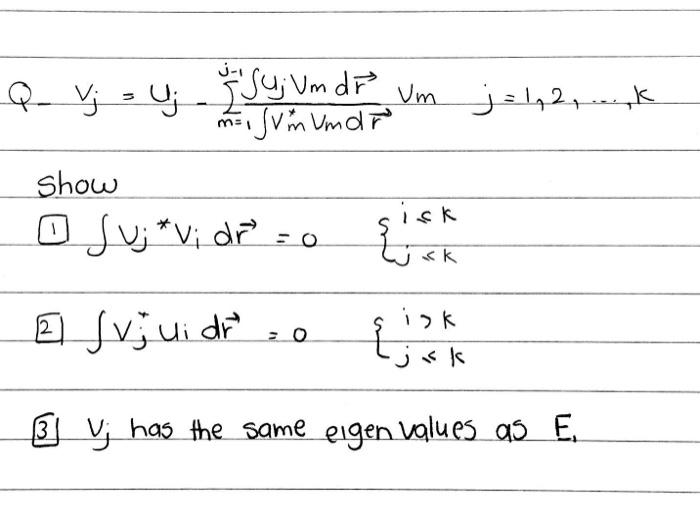 Q_ Vj = Uj - j-1 Σ m=1 ∫Uj Vm dr⃗ / ∫V*m Vm dr⃗ Vm j = 1, 2, ..., k
show
1 ∫ Vj * Vi dr⃗ = 0 { i ≤ k j ≤ k
2 ∫ Vj* ui dr⃗ = 0 { i > k j ≤ k
3 Vj has the same eigen values as E,